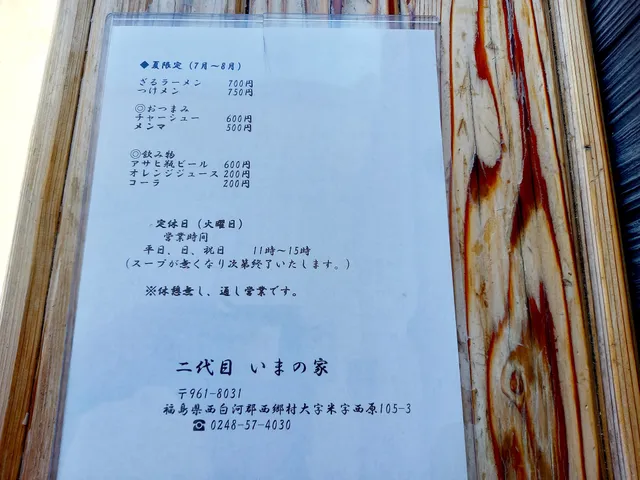 ◆夏限定（7月～8月）
ざるラーメン 700円
つけメン 750円
◎おつまみ
チャーシュー 600円
メンマ 500円
◎飲み物
アサヒ瓶ビール 600円
オレンジジュース 200円
コーラ 200円
定休日（火曜日）
営業時間
平日、日、祝日 11時～15時
（スープが無くなり次第終了いたします。）
※休憩無し、通し営業です。
二代目 いまの家
〒961-8031
福島県西白河郡西郷村大字米字西原105-3
☎ 0248-57-4030